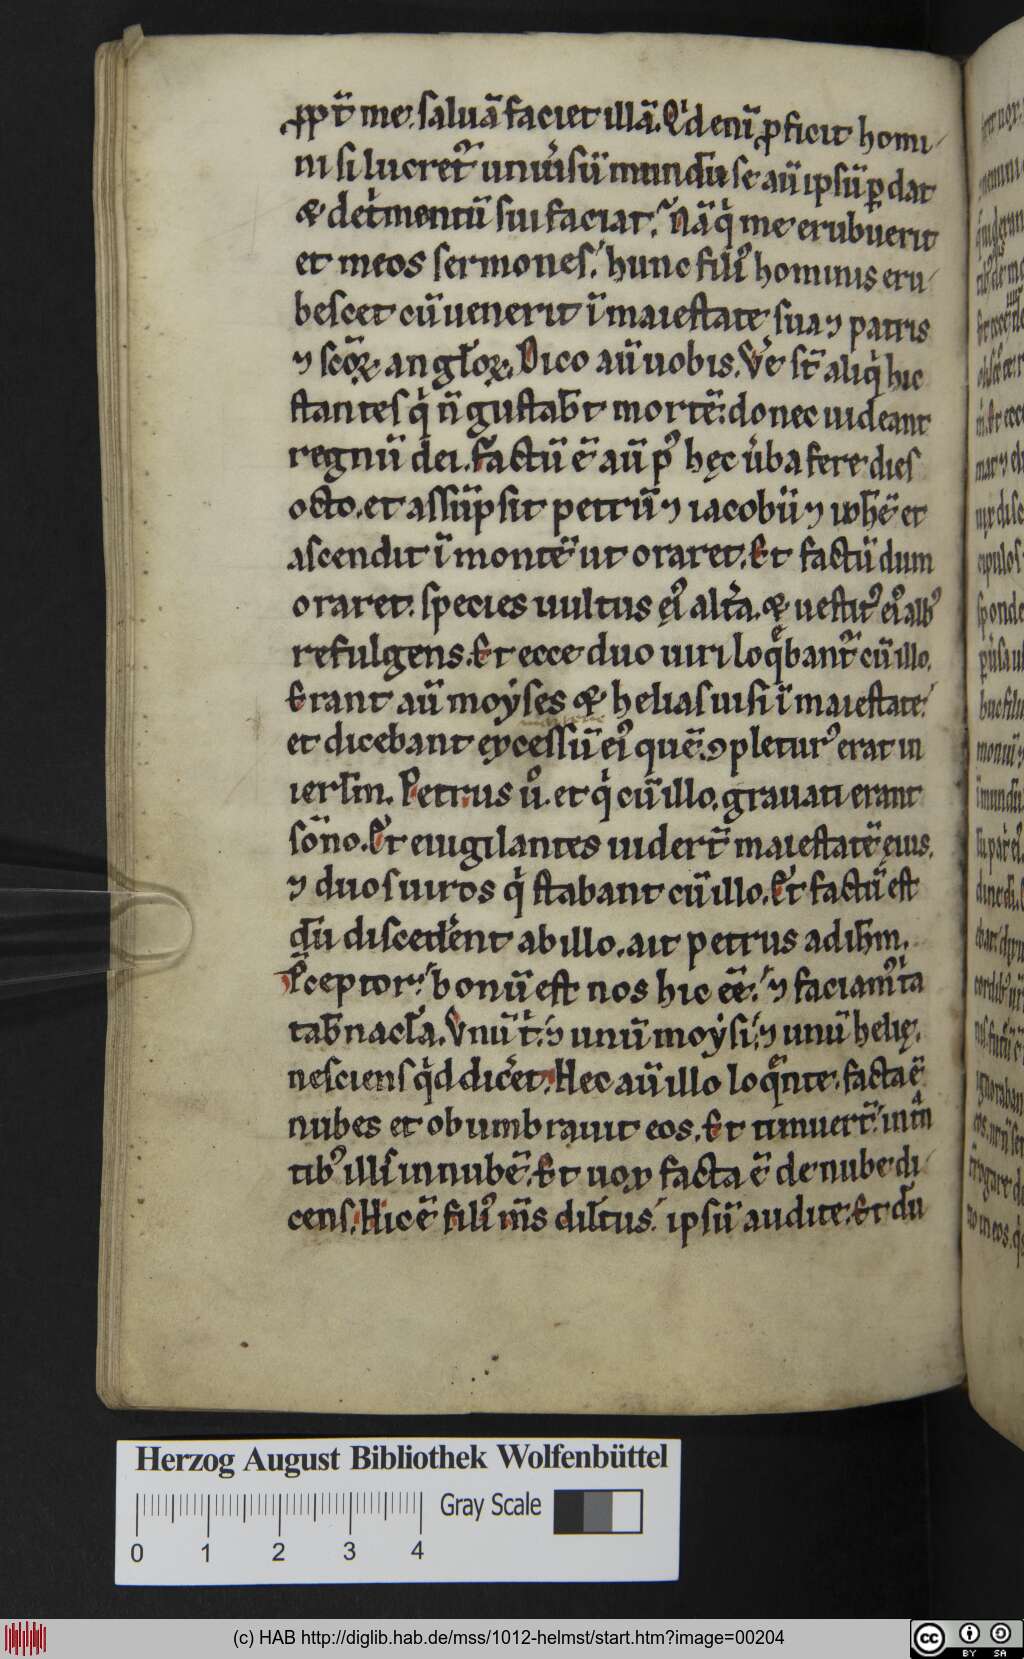 ꝓpt̄ me. saluā faciet illā. Qͥd enī ꝓficit homi
ni si lucret᷑ uniu͛sū mundū se aū ipsū ꝑdat
& det̉mentū sui faciat. Nā qͥ me erubuerit
et meos sermones. hunc filiꝰ hominis eru
bescet cū uenerit ī maiestate sua ⁊ patris
⁊ sc̄oꝝ angl̄oꝝ. Dico aū uobis. Ve st̄ aliqͥ hic
stantes qͥ n̄ gustab̄t mortē. donec uideant
regnū dei. Factū ē aū pꝰ hęc u͛ba fere dies
octo. et assūpsit petrū ⁊ iacobū ⁊ ioh̄ē et
ascendit ī montē ut oraret. Et factū dum
oraret. species uultus eiꝰ alt͛a. & uestitꝰ eiꝰ albꝰ
refulgens. Et ecce duo uiri loqͣbant᷑ cū illo.
Erant aū moẏses & helias uisi ī maiestate.
et dicebant excessū eiꝰ quē ꝯpleturꝰ erat in
ierl̄m. Petrus uͦ. et qͥ cū illo. grauati erant
sōno. Et euigilantes uidert̄ maiestatē eius.
⁊ duos uiros qͥ stabant cū illo. Et factū est
dū discedert̄ ab illo. ait petrus ad ih̄m.
P̄ceptor. bonū est nos hic eē. ⁊ faciamꝰ tͥa
tab̄nacl̄a. Vnū tͥ. ⁊ unū moẏsi. ⁊ unū helię.
nesciens qͥd dic͛et. Hec aū illo loqͣnte. facta ē
nubes et obumbrauit eos. Et timuert̄ intͣn
tibꝰ illis in nubē. Et uox facta ē de nube di
cens. Hic ē filiꝰ m̄s dil̄tus. ipsū audite. Et dū
Herzog August Bibliothek Wolfenbüttel
Gray Scale
0 1 2 3 4
(c) HAB http://diglib.hab.de/mss/1012-helmst/start.htm?image=00204
cc BY SA